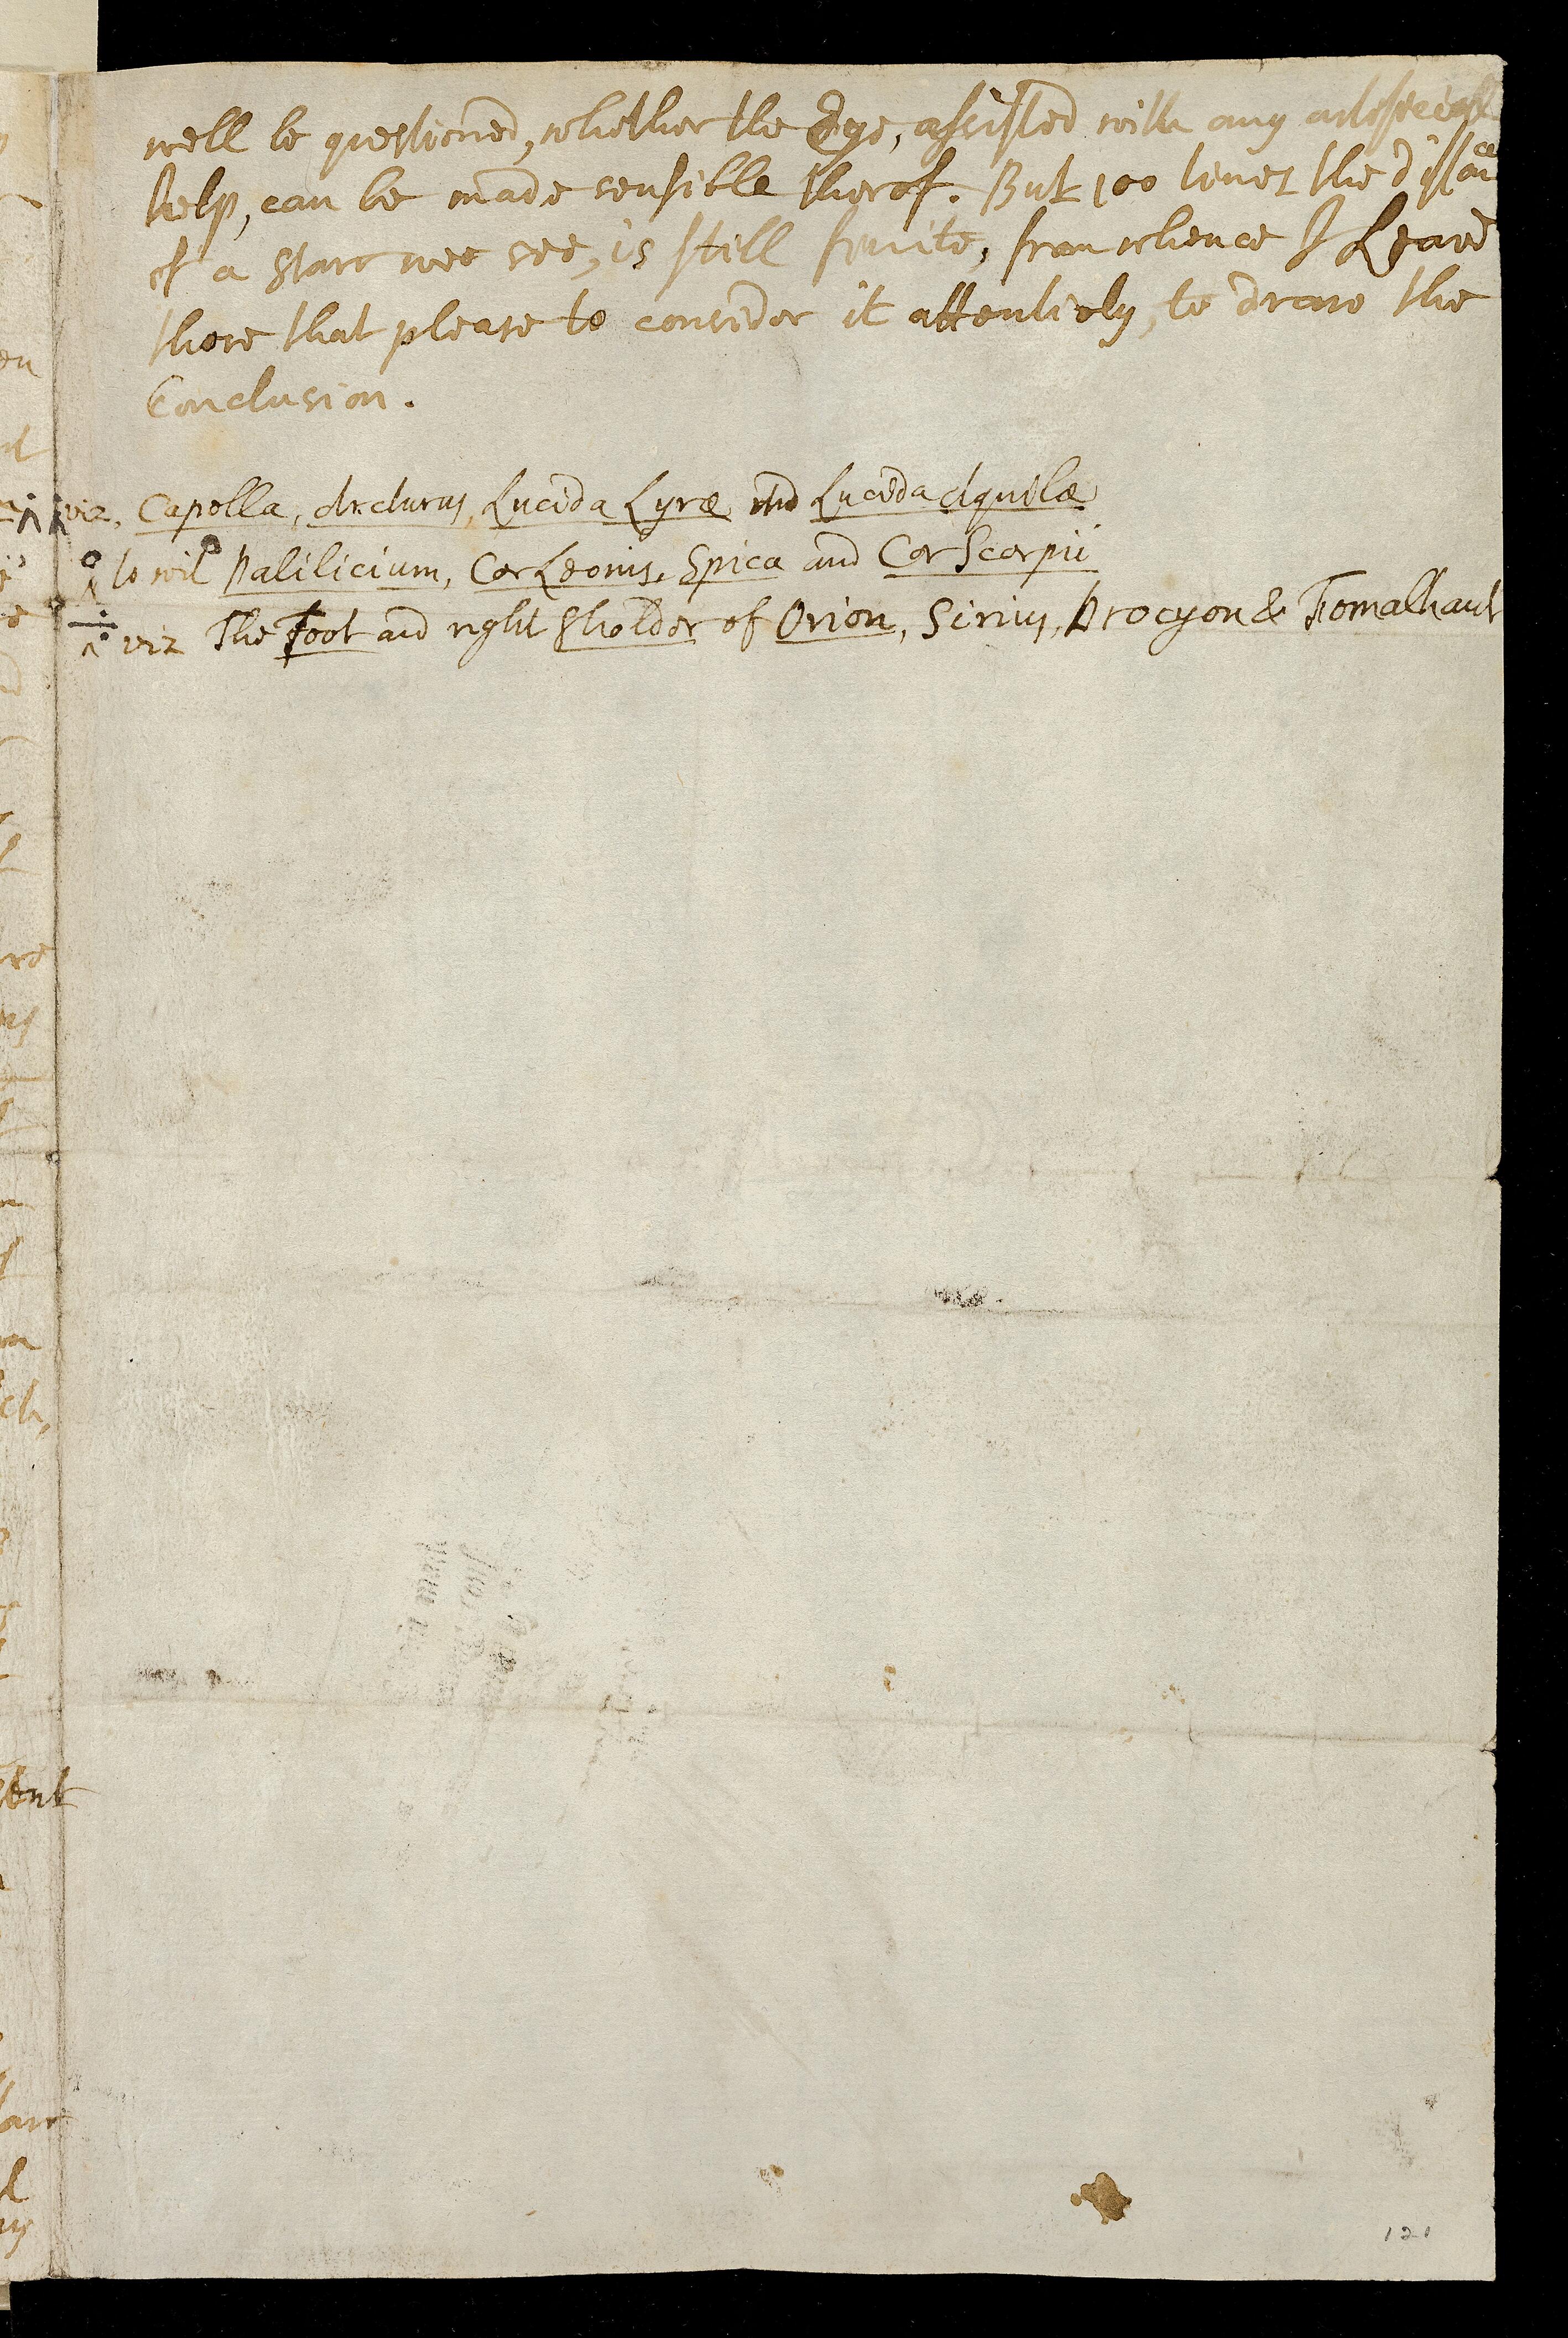 well be questioned, whether the Eye, assisted with any artificiall
help, can be made sensible therof. But 100 times the distance
of a Starr wee see, is still finite, from whence I Leave
those that please to consider it attentively, to draw the
Conclusion.
viz. Capella, Arcturus, Lucida Lyræ and Lucida Aquilæ
to wit Palilicium, Cor Leonis, Spica and Cor Scorpii
viz The Foot and right Sholder of Orion, Sirius, Procyon & Fomalhaut
121